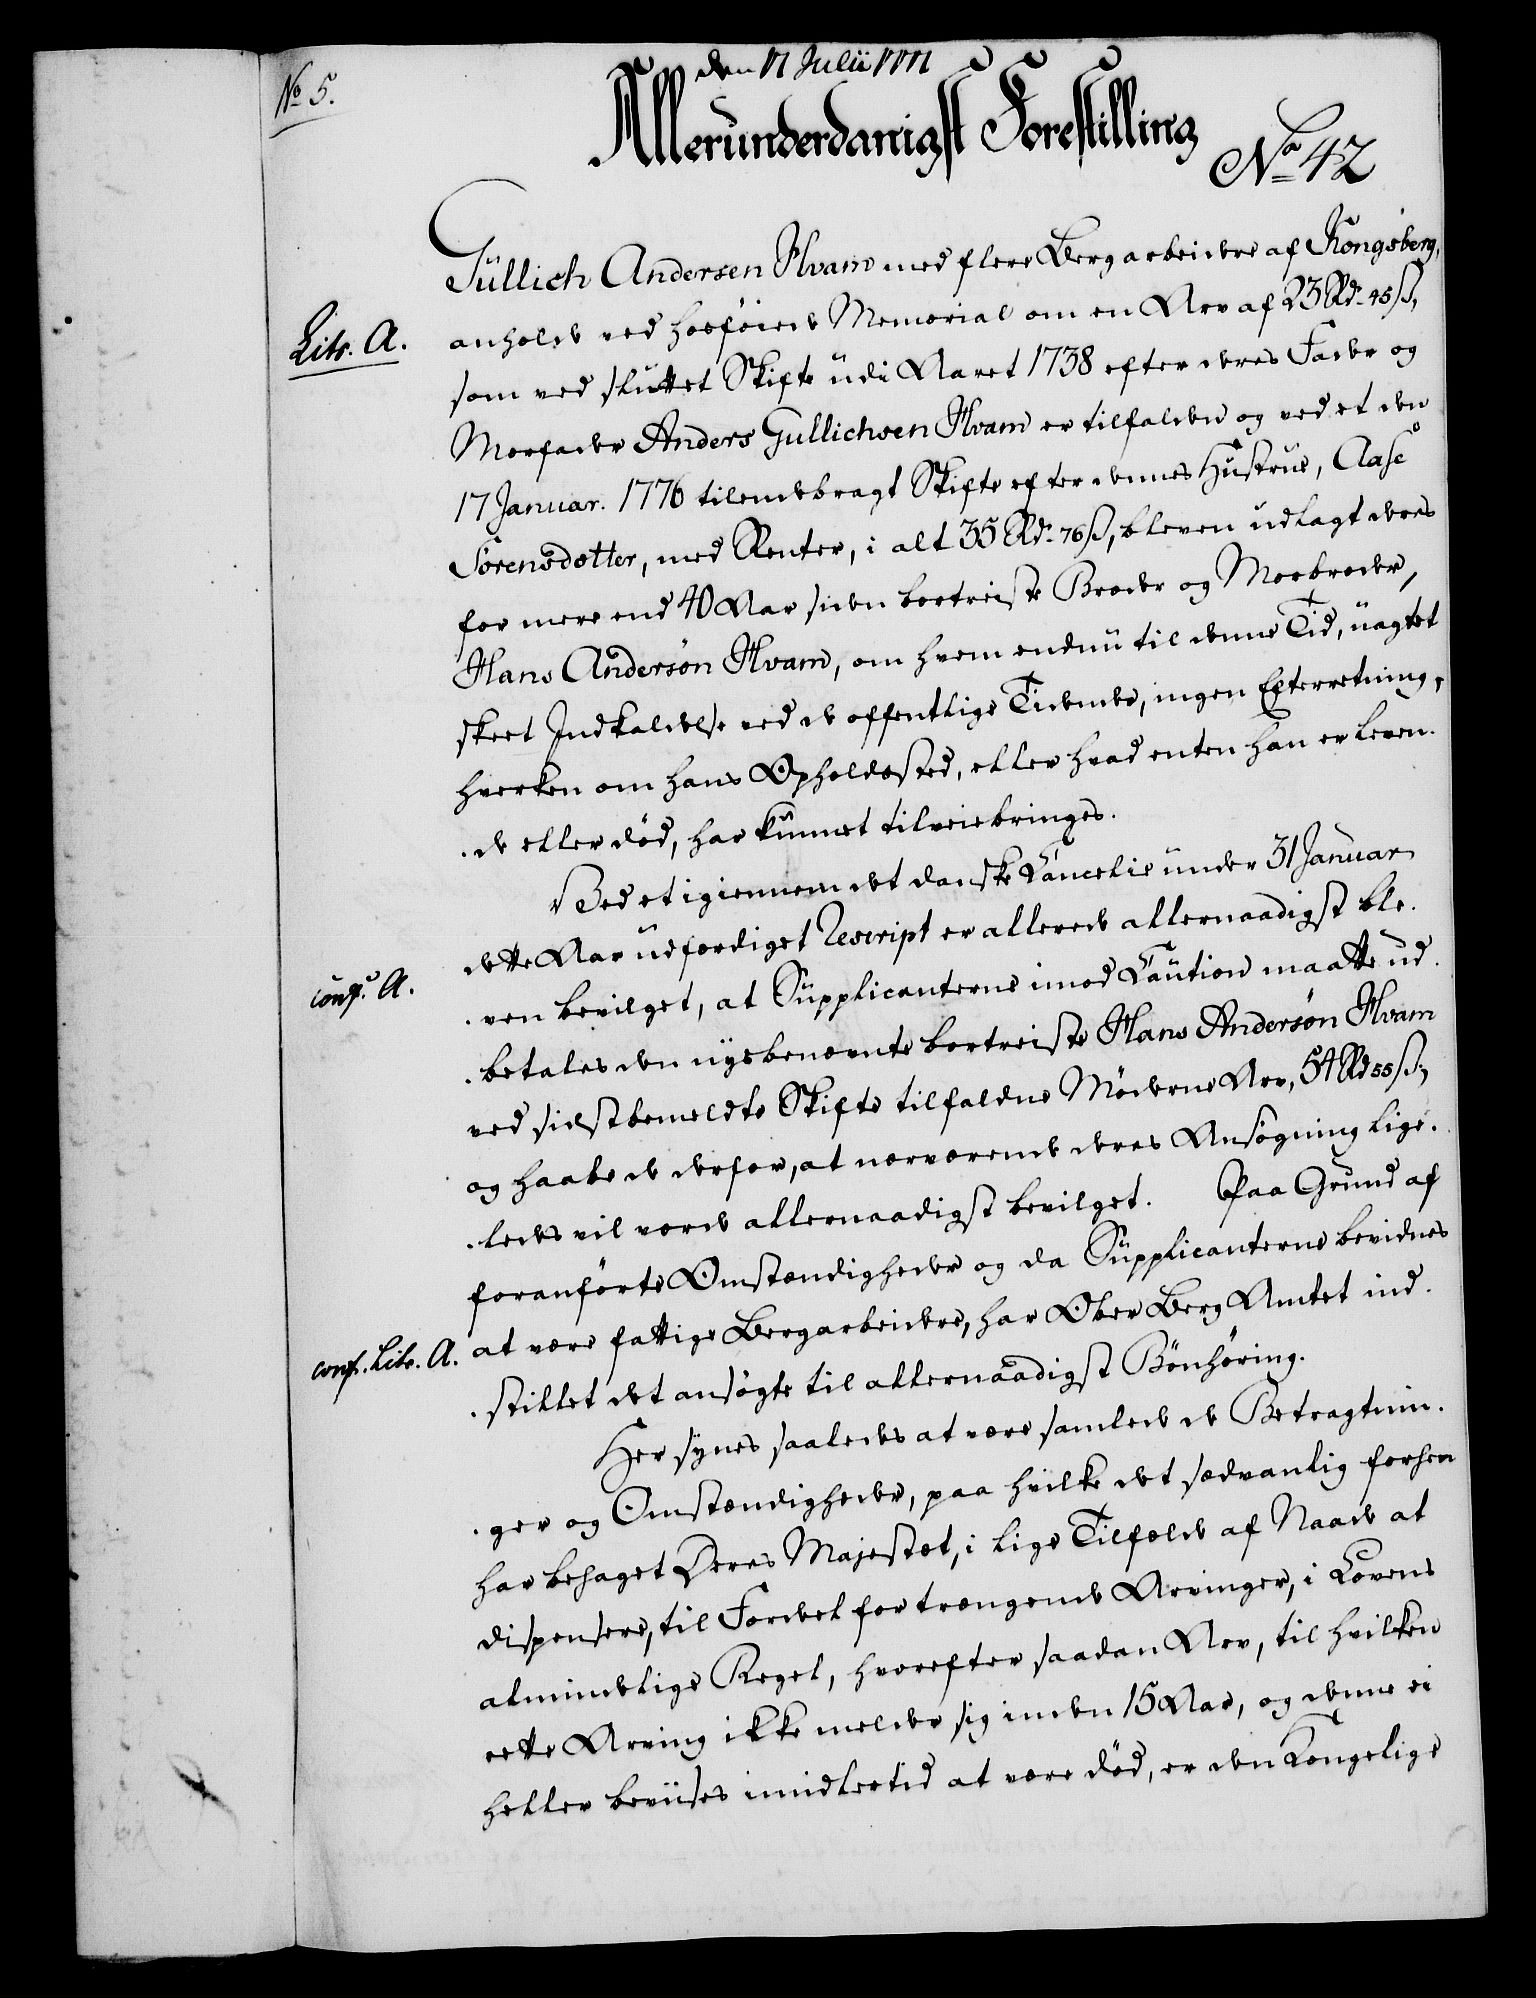 No 5.
den 17 Julii 1777
Allerunderdanigst Forestilling
No 42
Gullich Andersen Hvam med flere Bergarbeidere af Kongsberg,
Litr. A.
anholde ved hosføiede Memorial om en Arv af 23 Rdr 45 ß,
som ved sluttet Skifte udi Aaret 1738 efter deres Fader og
Morfader Anders Gullichsen Hvam er tilfalden og ved et den
17 Januar. 1776 tilendebragt Skifte efter dennes Hustrue, Aase
Sørensdotter, med Renter, i alt 35 Rdr 76 ß, bleven udlagt deres
for mere end 40 Aar siden bortreiste Broder og Morbroder,
Hans Andersøn Hvam, om hvem endnu til denne Tid, uagtet
skeet Indkaldelse ved de offentlige Tidender, ingen Efterretning,
hverken om hans Opholdssted, eller hvad enten han er leven-
-de eller død, har kunnet tilveiebringes.
Ved et igiennem det danske Cancelie under 31 Januar
dette Aar udfærdiget Rescript er allerede allernaadigst ble-
conf. A.
-ven bevilget, at Supplicanterne imod Caution maatte ud-
-betales den nysbenævnte bortreiste Hans Andersøn Hvam
ved sidstbemeldte Skifte tilfaldne Møderne Arv, 54 Rd 55 ß,
og haabe de derfor, at nærværende deres Ansøgning lige-
-ledes vil vorde allernaadigst bevilget. Paa Grund af
foranførte Omstændigheder og da Supplicanterne bevidnes
conf. Litr. A.
at være fattige Bergarbeidere, har Ober Berg Amtet ind-
-stillet det ansøgte til allernaadigst Bønhøring.
Her synes saaledes at være samlede de Betragtnin-
-ger og Omstændigheder, paa hvilke det sædvanlig forhen
har behaget Deres Majestæt, i lige Tilfælde af Naade at
dispensere, til Fordeel for trængende Arvinger, i Lovens
almindelige Regel, hvorefter saadan Arv, til hvilken
rette Arving ikke melder sig inden 15 Aar, og denne ei
heller beviises imidlertid at være død, er den Kongelige